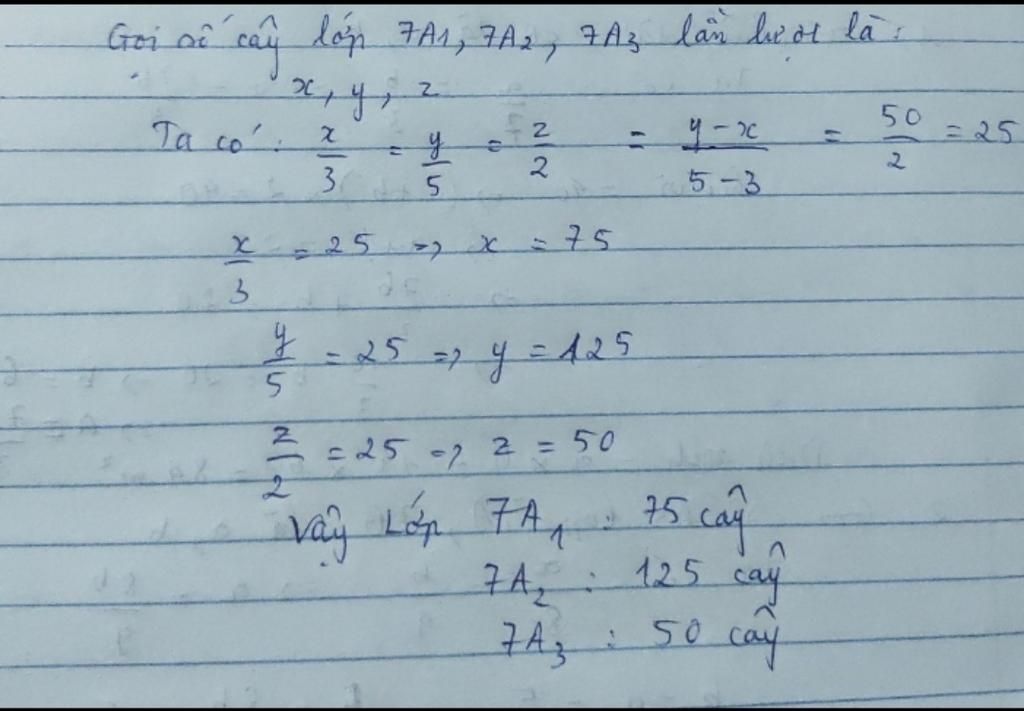 Gọi số cây lớp 7A1, 7A2, 7A3 lần lượt là:
x, y, z
Ta có: x/3 = y/5 = z/2 = y-x/5-3 = 50/2 = 25
x/3 = 25 => x = 75
y/5 = 25 => y = 125
z/2 = 25 => z = 50
Vậy Lớp 7A1 : 75 cây
7A2 : 125 cây
7A3 : 50 cây